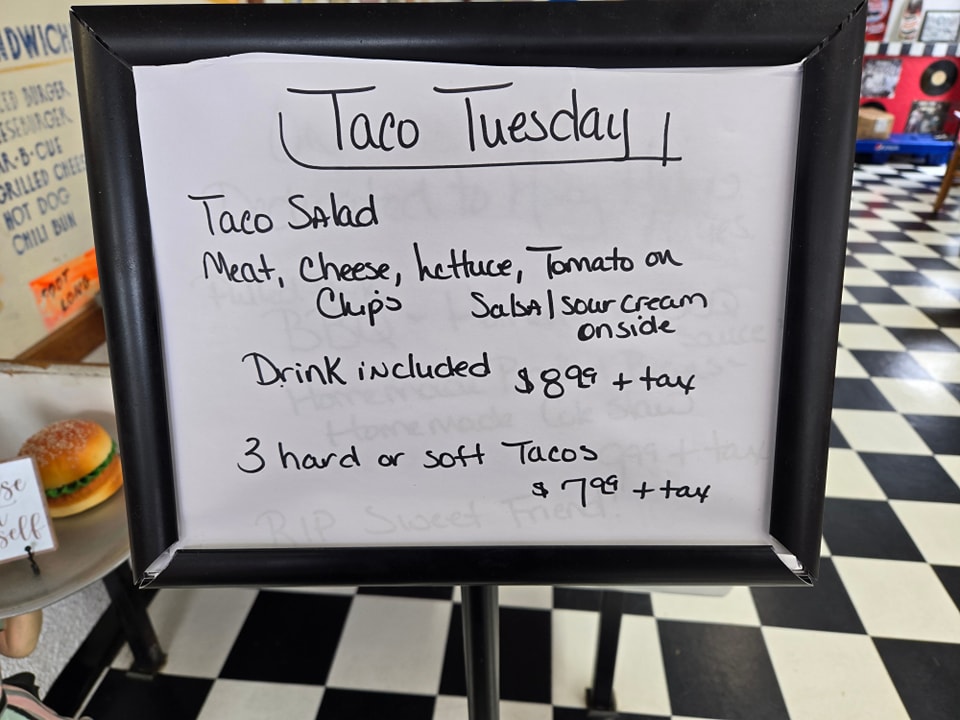 Taco Tuesday
Taco Salad
Meat, Cheese, Lettuce, Tomato on
Chips Salsa/sour cream
on side
Drink included $8.99 + tax
3 hard or soft Tacos
$7.99 + tax
Homemade
Homemade
99 + tax
RIP Sweet Friend.
NDWICH
BURGER
R-B-CUE
GRILLED CHEES
HOT DOG
CHILI BUN
FOOT
LONG
self